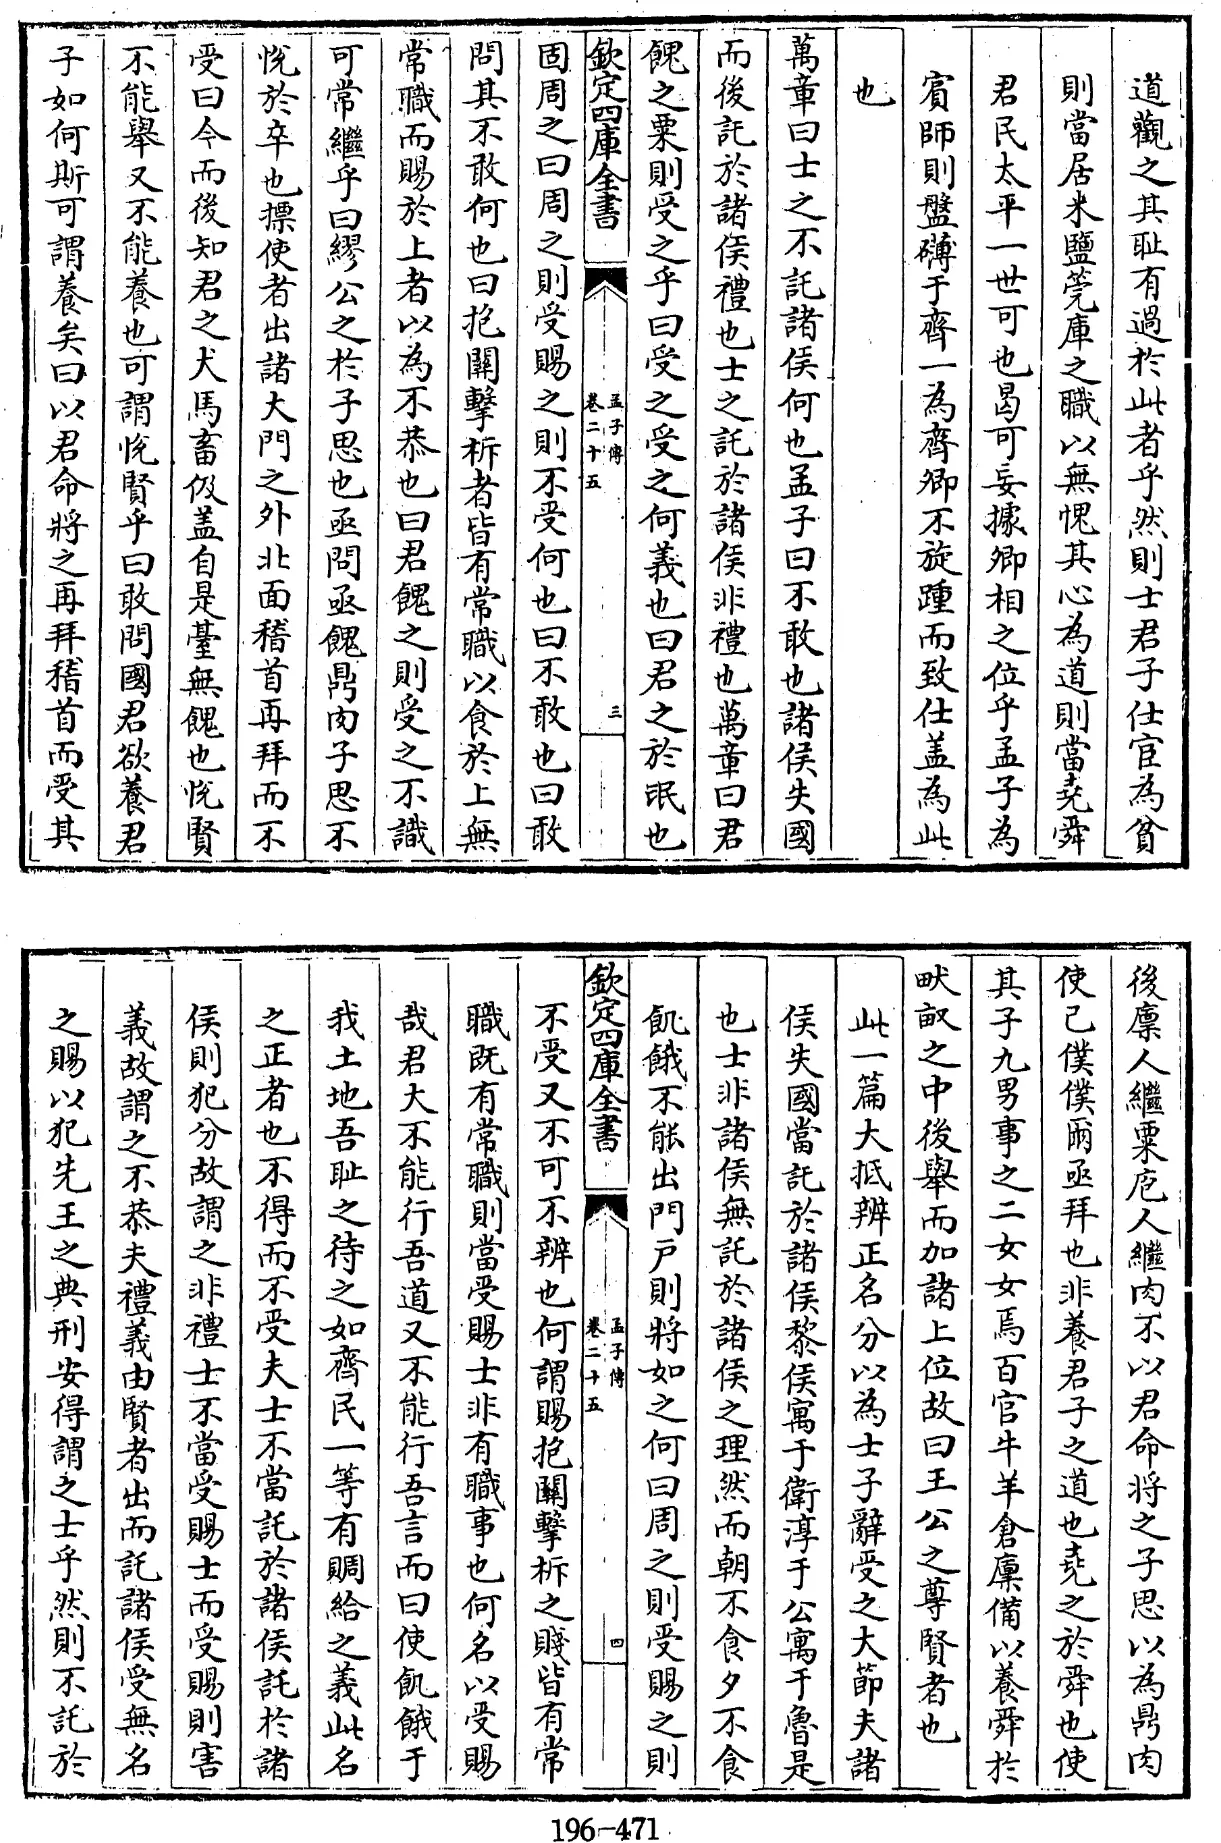 道觀之其耻有過於此者乎然則士君子仕宦為貧
則當居米鹽筦庫之職以無愧其心為道則當堯舜
君民太平一世可也曷可妄據卿相之位乎孟子為
賓師則盤礴于齊一為齊卿不旋踵而致仕盖為此
也
萬章曰士之不託諸侯何也孟子曰不敢也諸侯失國
而後託於諸侯禮也士之託於諸侯非禮也萬章曰君
餽之粟則受之乎曰受之受之何義也曰君之於氓也
欽定四庫全書
孟子傳
卷二十五
三
固周之曰周之則受賜之則不受何也曰不敢也曰敢
問其不敢何也曰抱關擊柝者皆有常職以食於上無
常職而賜於上者以為不恭也曰君餽之則受之不識
可常繼乎曰繆公之於子思也亟問亟餽鼎肉子思不
悅於卒也摽使者出諸大門之外北面稽首再拜而不
受曰今而後知君之犬馬畜伋盖自是臺無餽也悅賢
不能舉又不能養也可謂悅賢乎曰敢問國君欲養君
子如何斯可謂養矣曰以君命將之再拜稽首而受其
後廩人繼粟庖人繼肉不以君命將之子思以為鼎肉
使己僕僕爾亟拜也非養君子之道也堯之於舜也使
其子九男事之二女女焉百官牛羊倉廩備以養舜於
畎畝之中後舉而加諸上位故曰王公之尊賢者也
此一篇大抵辨正名分以為士子辭受之大節夫諸
侯失國當託於諸侯黎侯寓于衛淳于公寓于魯是
也士非諸侯無託於諸侯之理然而朝不食夕不食
飢餓不能出門戸則將如之何曰周之則受賜之則
欽定四庫全書
孟子傳
卷二十五
四
不受又不可不辨也何謂賜抱關擊柝之賤皆有常
職既有常職則當受賜士非有職事也何名以受賜
哉君大不能行吾道又不能行吾言而曰使飢餓于
我土地吾耻之待之如齊民一等有賙給之義此名
之正者也不得而不受夫士不當託於諸侯託於諸
侯則犯分故謂之非禮士不當受賜士而受賜則害
義故謂之不恭夫禮義由賢者出而託諸侯受無名
之賜以犯先王之典刑安得謂之士乎然則不託於
196-471